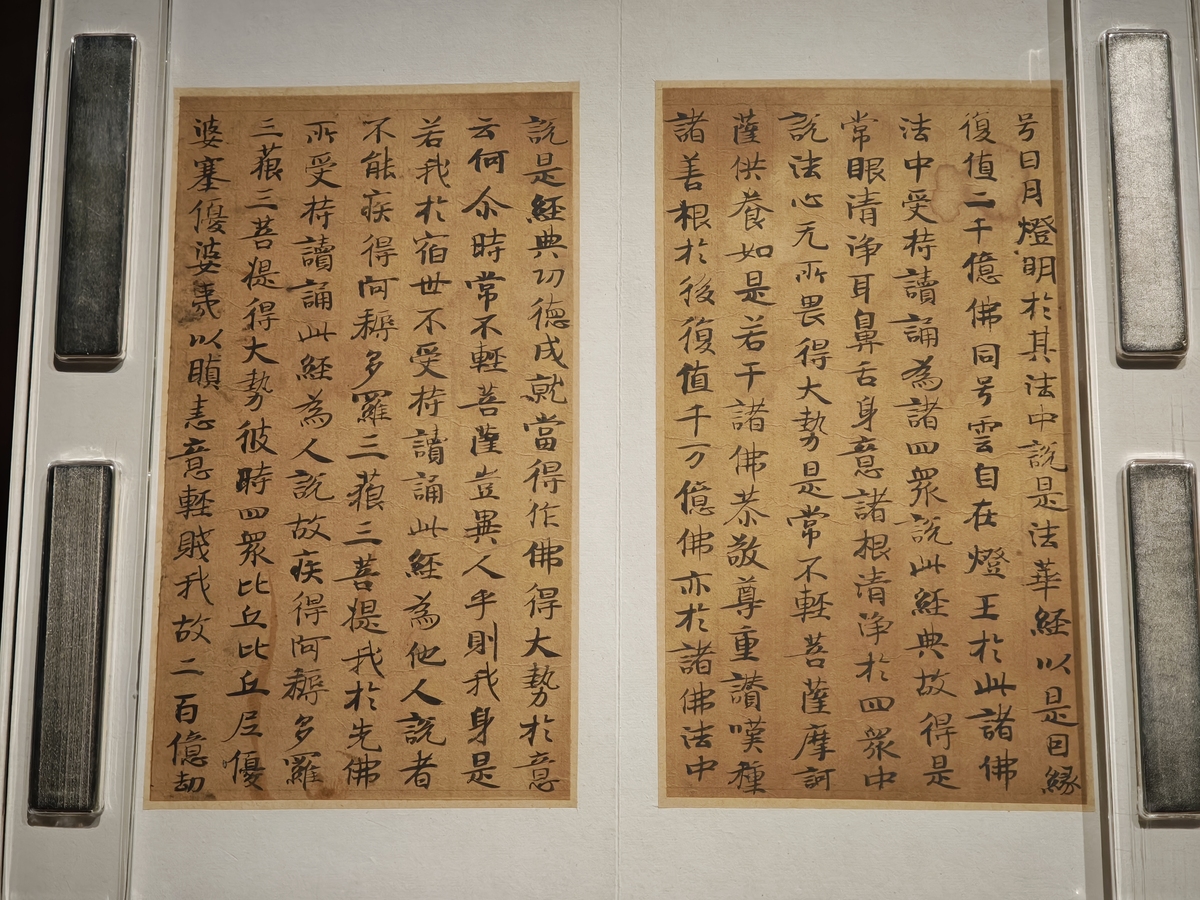 号日月燈明於其法中說是法華經以是因緣
復值二千億佛同号雲自在燈王於此諸佛
法中受持讀誦為諸四衆說此經典故得是
常眼清淨耳鼻舌身意諸根清淨於四衆中
說法心无所畏得大勢是常不輕菩薩摩訶
薩供養如是若干諸佛恭敬尊重讚嘆種
諸善根於後復值千万億佛亦於諸佛法中
說是經典功德成就當得作佛得大勢於意
云何尒時常不輕菩薩豈異人乎則我身是
若我於宿世不受持讀誦此經為他人說者
不能疾得阿耨多羅三藐三菩提我於先佛
所受持讀誦此經為人說故疾得阿耨多羅
三藐三菩提得大勢彼時四衆比丘比丘尼優
婆塞優婆夷以瞋恚意輕賤我故二百億劫